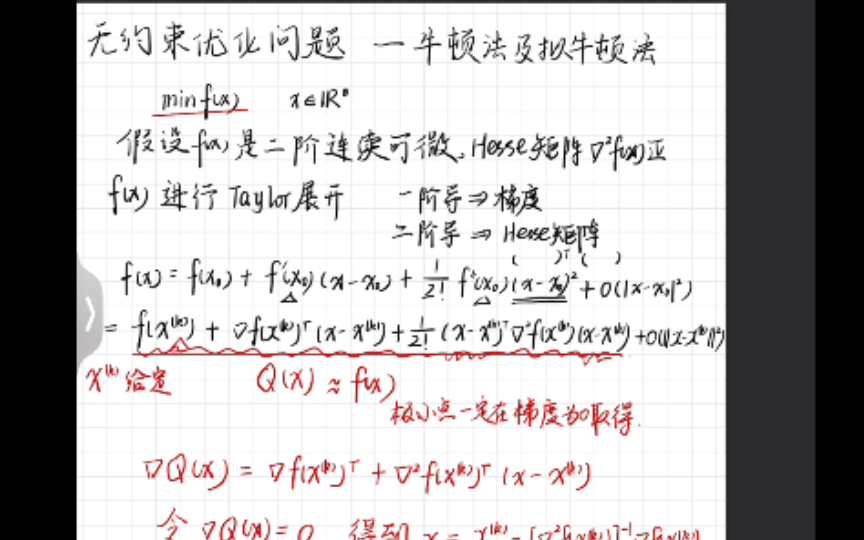 无约束优化问题 — 牛顿法及拟牛顿法
min f(x) x∈ℝⁿ
假设f(x)是二阶连续可微,Hesse矩阵∇²f(x)正
f(x) 进行Taylor展开 一阶导⇒梯度
二阶导 ⇒ Hesse矩阵
( )ᵀ ( )
f(x) = f(x₀) + f'(x₀)(x-x₀) + 1/2! f''(x₀)(x-x₀)² + O(|x-x₀|²)
= f(x⁽ᵏ⁾) + ∇f(x⁽ᵏ⁾)ᵀ(x-x⁽ᵏ⁾) + 1/2! (x-x⁽ᵏ⁾)ᵀ∇²f(x⁽ᵏ⁾)(x-x⁽ᵏ⁾) + O(||x-x⁽ᵏ⁾||²)
x⁽ᵏ⁾给定 Q(x) ≈ f(x)
极小点一定在梯度为0取得.
∇Q(x) = ∇f(x⁽ᵏ⁾)ᵀ + ∇²f(x⁽ᵏ⁾)ᵀ (x-x⁽ᵏ⁾)
令 ∇Q(x)=0 得到 x = x⁽ᵏ⁾-[∇²f(x⁽ᵏ⁾)]⁻¹∇f(x⁽ᵏ⁾)